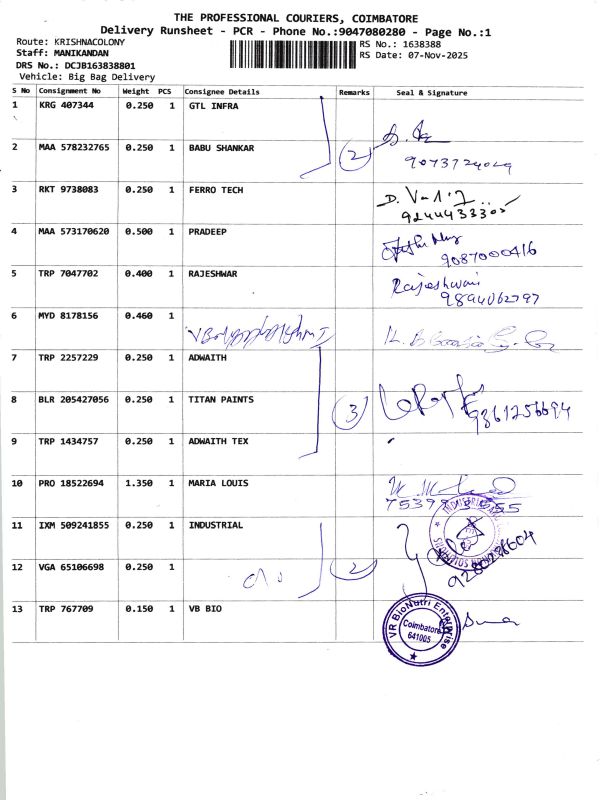 THE PROFESSIONAL COURIERS, COIMBATORE
Delivery Runsheet - PCR - Phone No.:9047080280 - Page No.:1
Route: KRISHNACOLONY
Staff: MANIKANDAN
DRS No.: DCJB163838801
Vehicle: Big Bag Delivery
RS No.: 1638388
RS Date: 07-Nov-2025
S No Consignment No Weight PCS Consignee Details Remarks Seal & Signature
1 KRG 407344 0.250 1 GTL INFRA
2 MAA 578232765 0.250 1 BABU SHANKAR 2
3 RKT 9738083 0.250 1 FERRO TECH
9244433305
4 MAA 573170620 0.500 1 PRADEEP
9087000416
5 TRP 7047702 0.400 1 RAJESHWAR Rajeshwari
9894062797
6 MYD 8178156 0.460 1
7 TRP 2257229 0.250 1 ADWAITH
8 BLR 205427056 0.250 1 TITAN PAINTS 3 9361256694
9 TRP 1434757 0.250 1 ADWAITH TEX
10 PRO 18522694 1.350 1 MARIA LOUIS
11 IXM 509241855 0.250 1 INDUSTRIAL
12 VGA 65106698 0.250 1 2
13 TRP 767709 0.150 1 VB BIO
VR BioNutri Enterprise
Coimbatore
641005